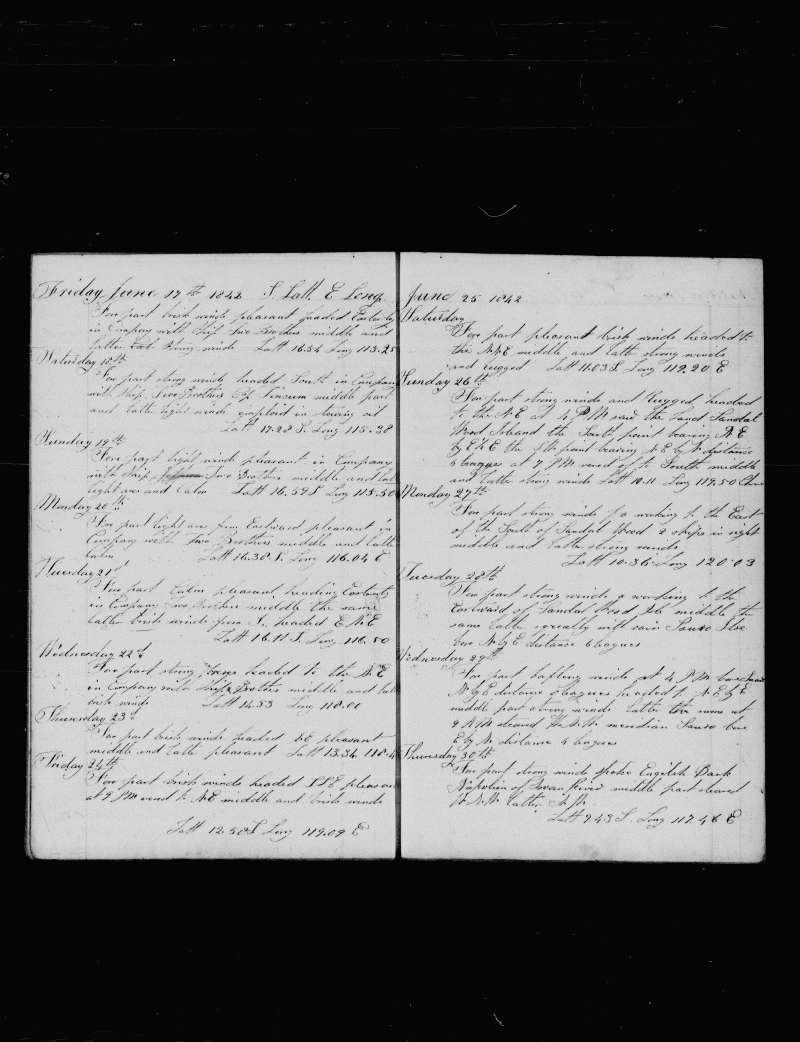 Friday June 17th 1842 S Latt. E Long
Fore part brisk winds pleasant headed Eastardly
in Company with Ship Two Brothers middle and
latter strong winds Latt 16.54 Long 115.25
Saturday 18th
Fore part strong winds headed South in Company
with Ship Two Brothers middle part
and latter light winds employed in towing oil
Latt 17.28 S. Long 115.38
Sunday 19th
Fore part light winds pleasant in Company
with Ship Two Brothers middle and lat
light airs and Calm Latt 16.59 S Long 115.50
Monday 20th
Fore part light airs from Eastward pleasant in
Company with Two Brothers middle and latter
Calm Latt 16.38 S. Long 116.04 E
Tuesday 21st
Fore part Calm pleasant heading Eastardly
in Company Two Brothers middle the same
latter brisk winds from S. headed E N E
Latt 16.11 S. Long 116.50
Wednesday 22d
Fore part strong headed to the N E
in Company with Ship Brothers middle and latt
brisk winds Latt 14.53 Long 118.00
Thursday 23d
Fore part brisk winds headed pleasant
middle and latter pleasant Latt 13.34 118.4
Friday 24th
Fore part brisk winds headed SSE pleasan
at 9 PM vered to NE middle and brisk winds
Latt 12.50 S Long 119.09 E
June 25 1842
Saturday
Fore part pleasant brisk winds headed to
the N.N.E middle and latte strong winds
and rugged Latt 11.03 S. Long 119.20 E
Sunday 26th
Fore part strong winds and Rugged headed
to the N.E at 4 PM saw the Land Sandal
Wood Island the South point bearing N E
by E ½ E the point bearing N E by N distance
6 leagues at 7 PM vered of to South middle
and latter strong winds Latt 10.11 Long 119.50
Monday 27th
Fore part strong winds a working to the East
of the South of Sandal Wood 2 ships in sight
middle and latter strong winds
Latt 10.36 Long 120.03
Tuesday 28th
Fore part strong winds a working to the
Eastward of Sandal Wood Isle middle the
same latter squally with rain Savo Isle
bore N by E distance 6 leagues
Wednesday 29th
Fore part bafling winds at 4 PM bore
N by E distance leagues headed to N E by E
middle part strong winds latter the same at
9 AM steared W.N.W meridian Savo bore
E by N distance 4 leagues
Thursday 30th
Fore part strong winds spoke English Bark
Napolien of Swan River middle part steared
W.N.W. latter N.W.
Latt 9.43 S. Long 117.46 E